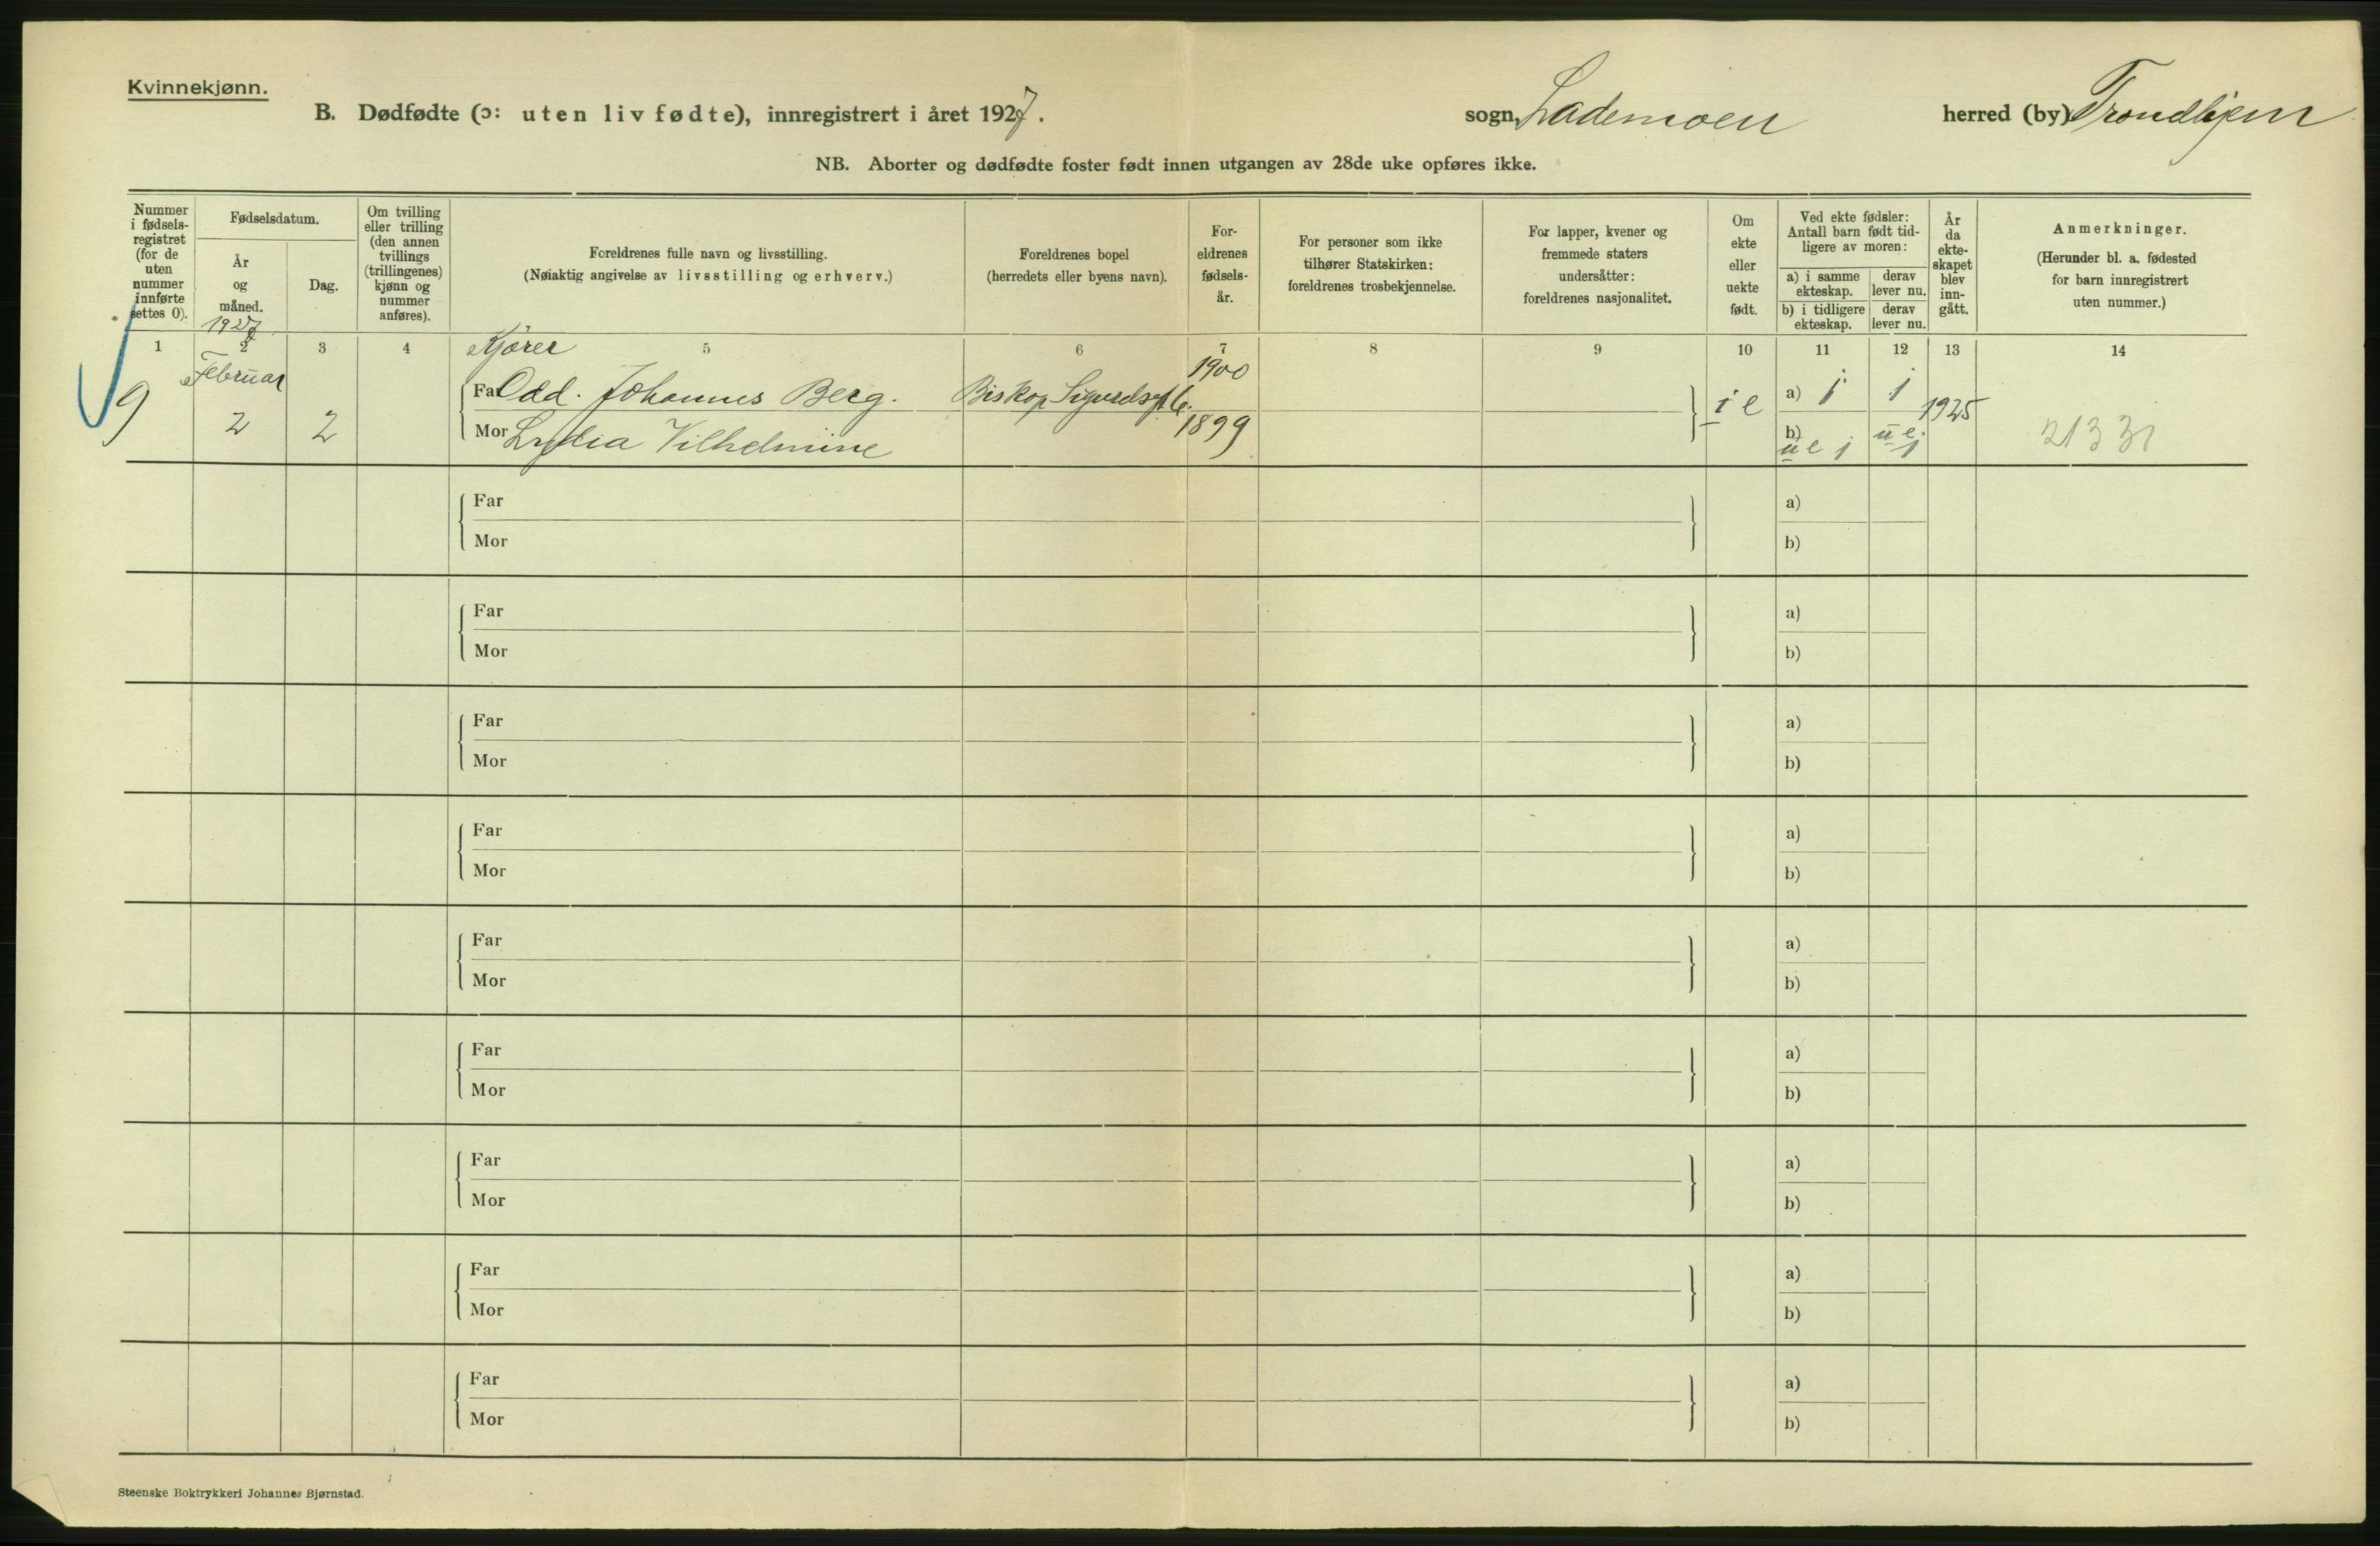 Kvinnekjønn.
B. Dødfødte (ɔ: uten liv fødte), innregistrert i året 1927.
sogn, Lademoen
herred (by) Trondhjem
NB. Aborter og dødfødte foster født innen utgangen av 28de uke opføres ikke.
Nummer
i fødsels-
registret
(for de
uten
nummer
innførte
settes 0).
Fødselsdatum.
År
og
måned.
Dag.
Om tvilling
eller trilling
(den annen
tvillings
(trillingenes)
kjønn og
nummer
anføres).
Foreldrenes fulle navn og livsstilling.
(Nøiaktig angivelse av livsstilling og erhverv.)
Foreldrenes bopel
(herredets eller byens navn).
For-
eldrenes
fødsels-
år.
For personer som ikke
tilhører Statskirken:
foreldrenes trosbekjennelse.
For lapper, kvener og
fremmede staters
undersåtter:
foreldrenes nasjonalitet.
Om
ekte
eller
uekte
født.
Ved ekte fødsler:
Antall barn født tid-
ligere av moren:
a) i samme
ekteskap.
derav
lever nu.
b) i tidligere
ekteskap.
derav
lever nu.
År
da
ekte-
skapet
blev
inn-
gått.
Anmerkninger.
(Herunder bl. a. fødested
for barn innregistrert
uten nummer.)
1927
1 2 3 4 5 6 7 8 9 10 11 12 13 14
Kjører
9 Februar
2 2
Far Odd. Johannes Berg. Biskop Sigurdsgt 6. 1900
Mor Lydia Vilhelmine 1899
i e
a) 1 1
b) u e 1 u e 1
1925
Far a)
Mor b)
Far a)
Mor b)
Far a)
Mor b)
Far a)
Mor b)
Far a)
Mor b)
Far a)
Mor b)
Far a)
Mor b)
Far a)
Mor b)
Far a)
Mor b)
Steenske Boktrykkeri Johannes Bjørnstad.